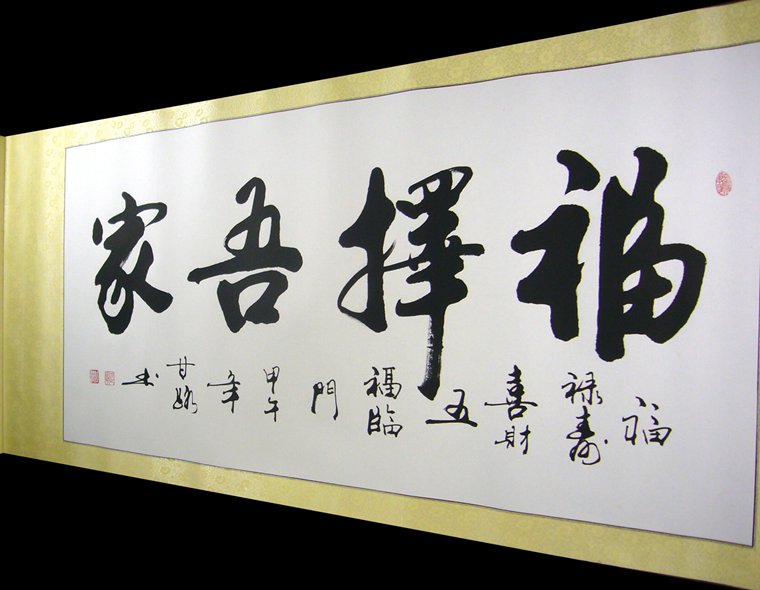 福擇吾家
福禄寿喜財五福臨門甲午年甘书